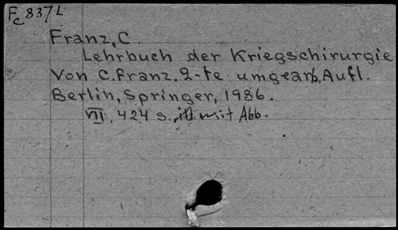 Fc 837L
Franz, C.
Lehrbuch der Kriegschirurgie
Von C. Franz. 2-te umgearb, Aufl.
Berlin, Springer, 1936.
VII, 424 s. ill mit Abb.